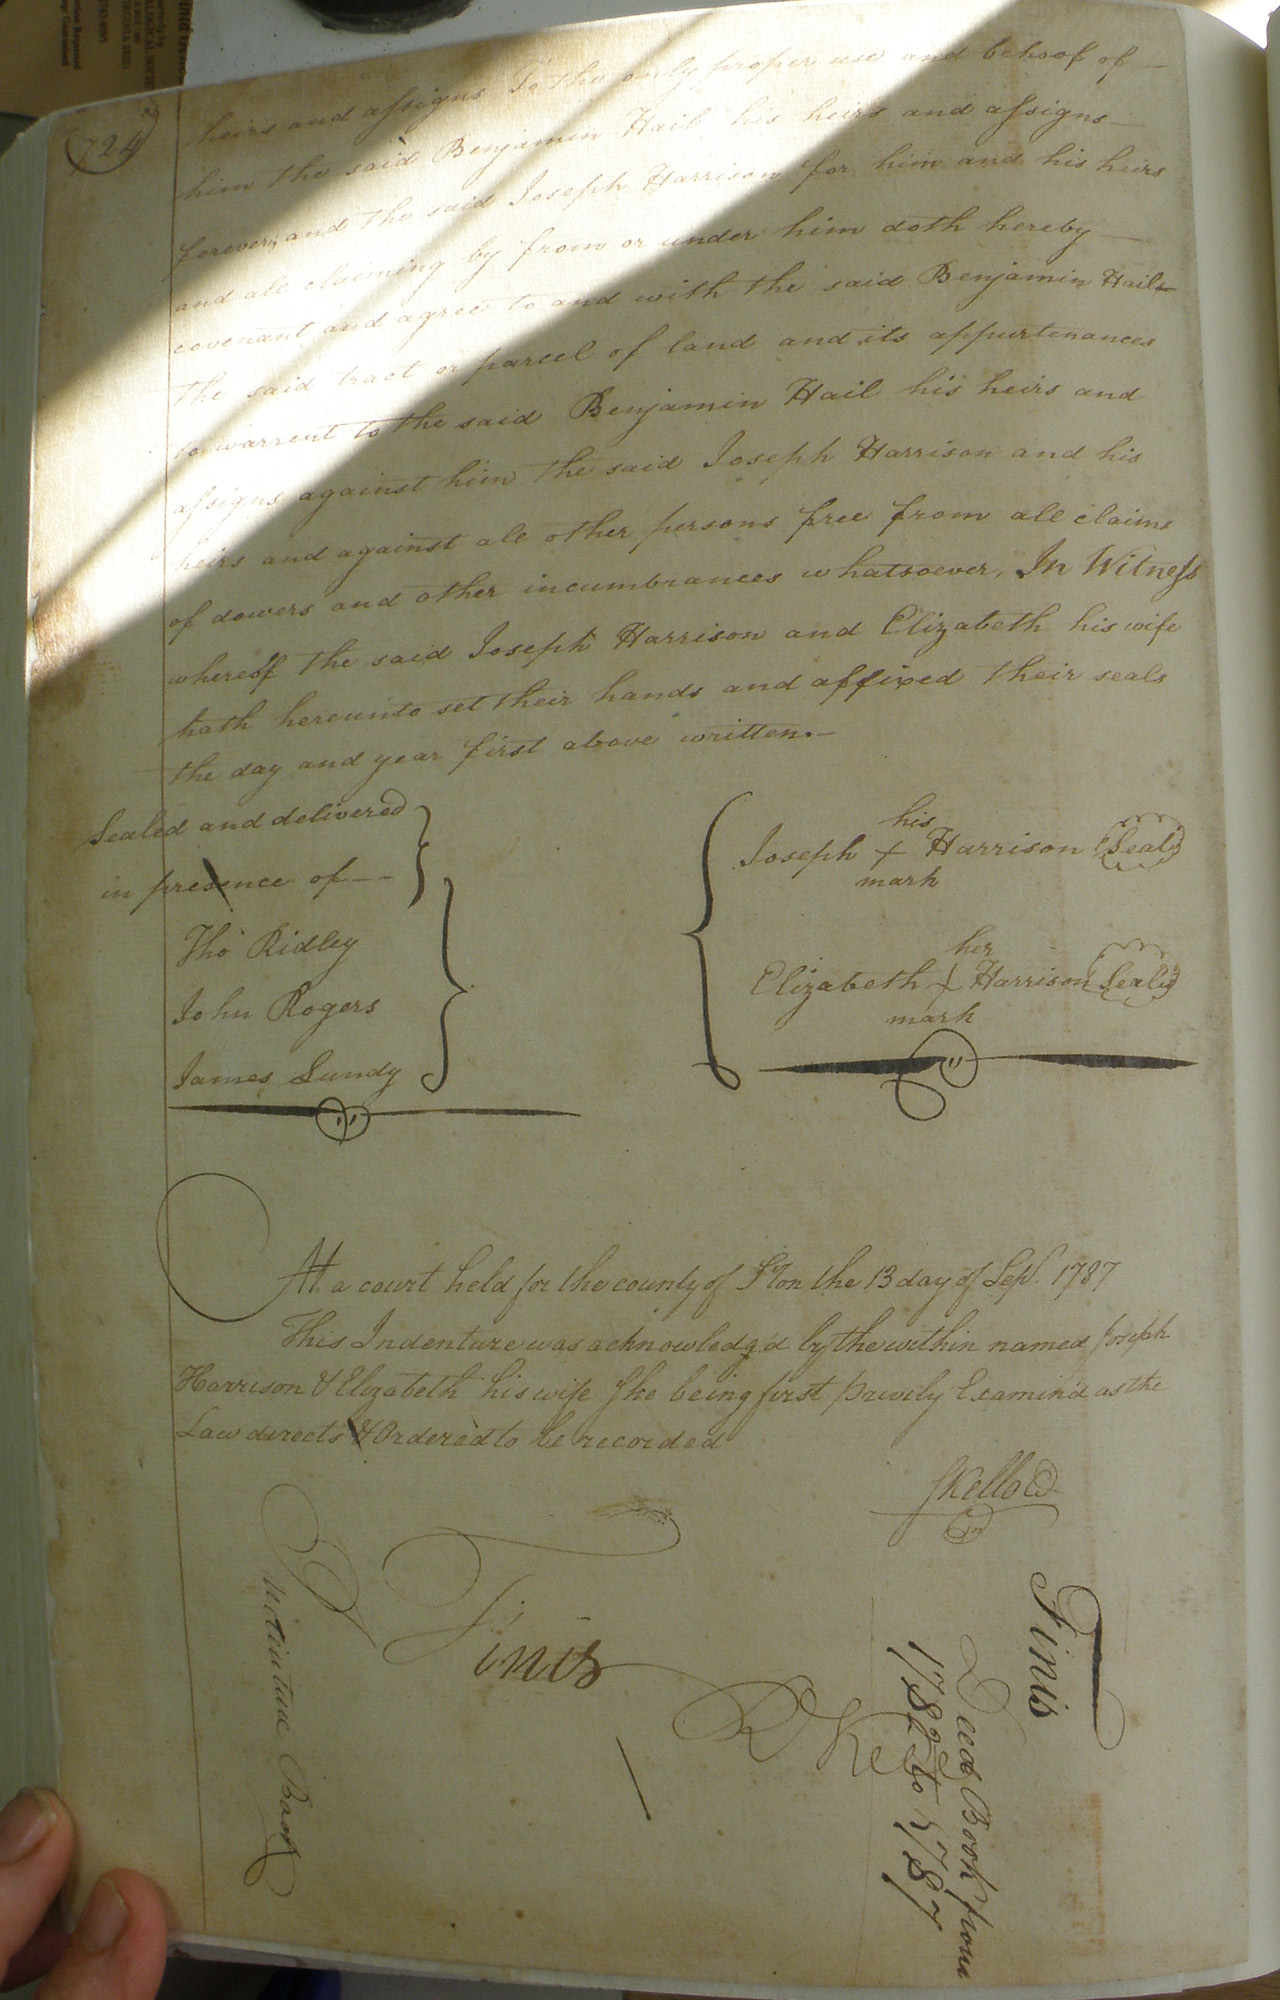 724
heirs and assigns To the only proper use and behoof of
him the said Benjamin Hail his heirs and assigns
forever; and the said Joseph Harrison for him and his heirs
and all claiming by from or under him doth hereby
covenant and agree to and with the said Benjamin Hail
the said tract or parcel of land and its appurtenances
to warrent to the said Benjamin Hail his heirs and
assigns against him the said Joseph Harrison and his
heirs and against all other persons free from all claims
of dowers and other incumbrances whatsoever, In Witness
whereof the said Joseph Harrison and Elizabeth his wife
hath hereunto set their hands and affixed their seals
the day and year first above written.
Sealed and delivered
in presence of
Tho Ridley
John Rogers
James Lundy
his
Joseph + Harrison Seal
mark
her
Elizabeth + Harrison Seal
mark
At a court held for the county of on the 13 day of Sept. 1787
This Indenture was acknowledg'd by the within named Joseph
Harrison & Elizabeth his wife She being first privily Examin'd as the
Law directs & Ordered to be recorded
SKello
Finis
Finis
Deed Book from
1782 to 1787